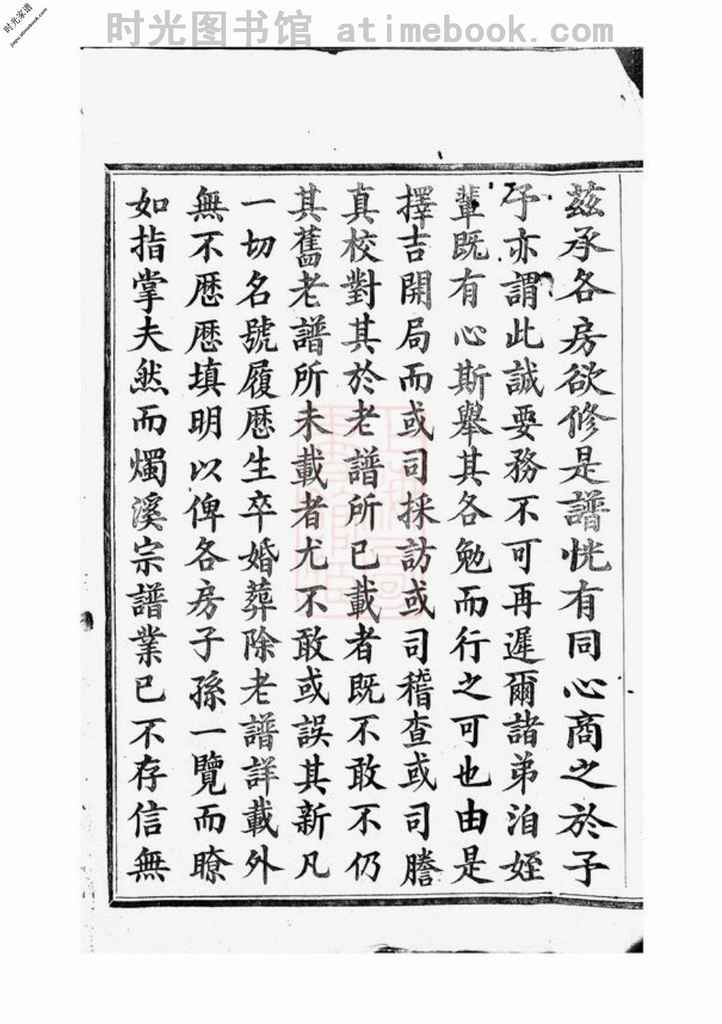 时光图书馆 atimebook.com
时光家谱
jiapu.atimebook.com
兹承各房欲修是譜恍有同心商之於予
予亦謂此誠要務不可再遲爾諸弟洎姪
輩既有心斯舉其各勉而行之可也由是
擇吉開局而或司採訪或司稽查或司謄
真校對其於老譜所已載者既不敢不仍
其舊老譜所未載者尤不敢或誤其新凡
一切名號履歷生卒婚葬除老譜詳載外
無不歷歷填明以俾各房子孫一覽而瞭
如指掌夫然而燭溪宗譜業已不存信無